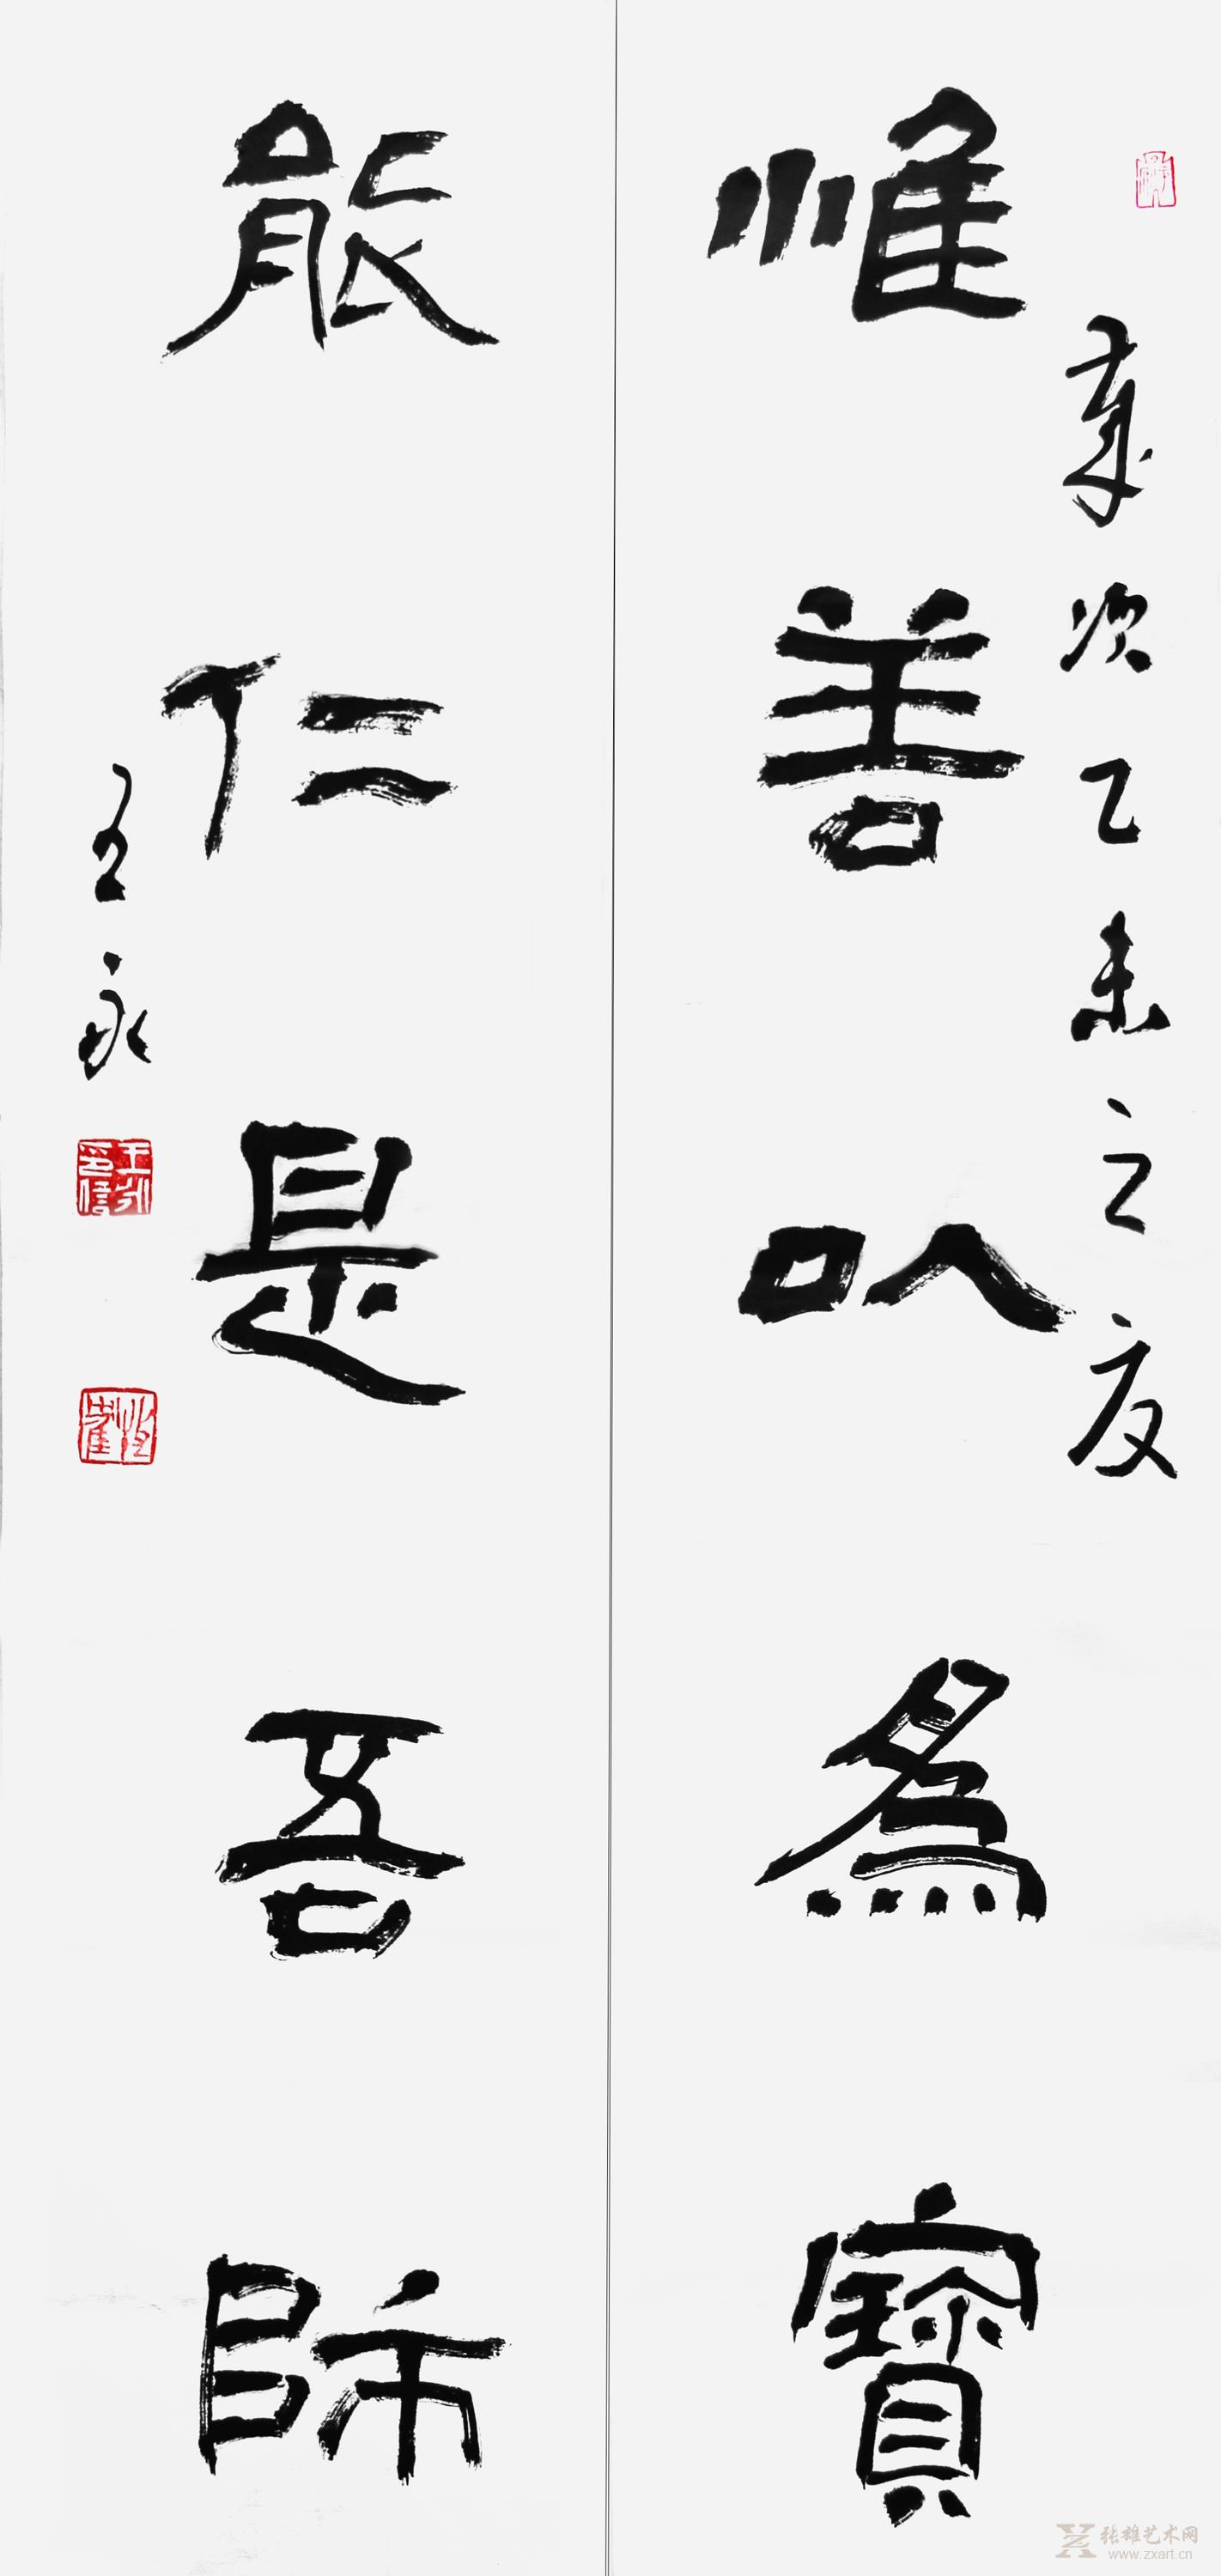 惟善以為寶
歲次乙未之夏
能仁是吾師
王永
王永印信
张雄艺术网
www.zxart.cn